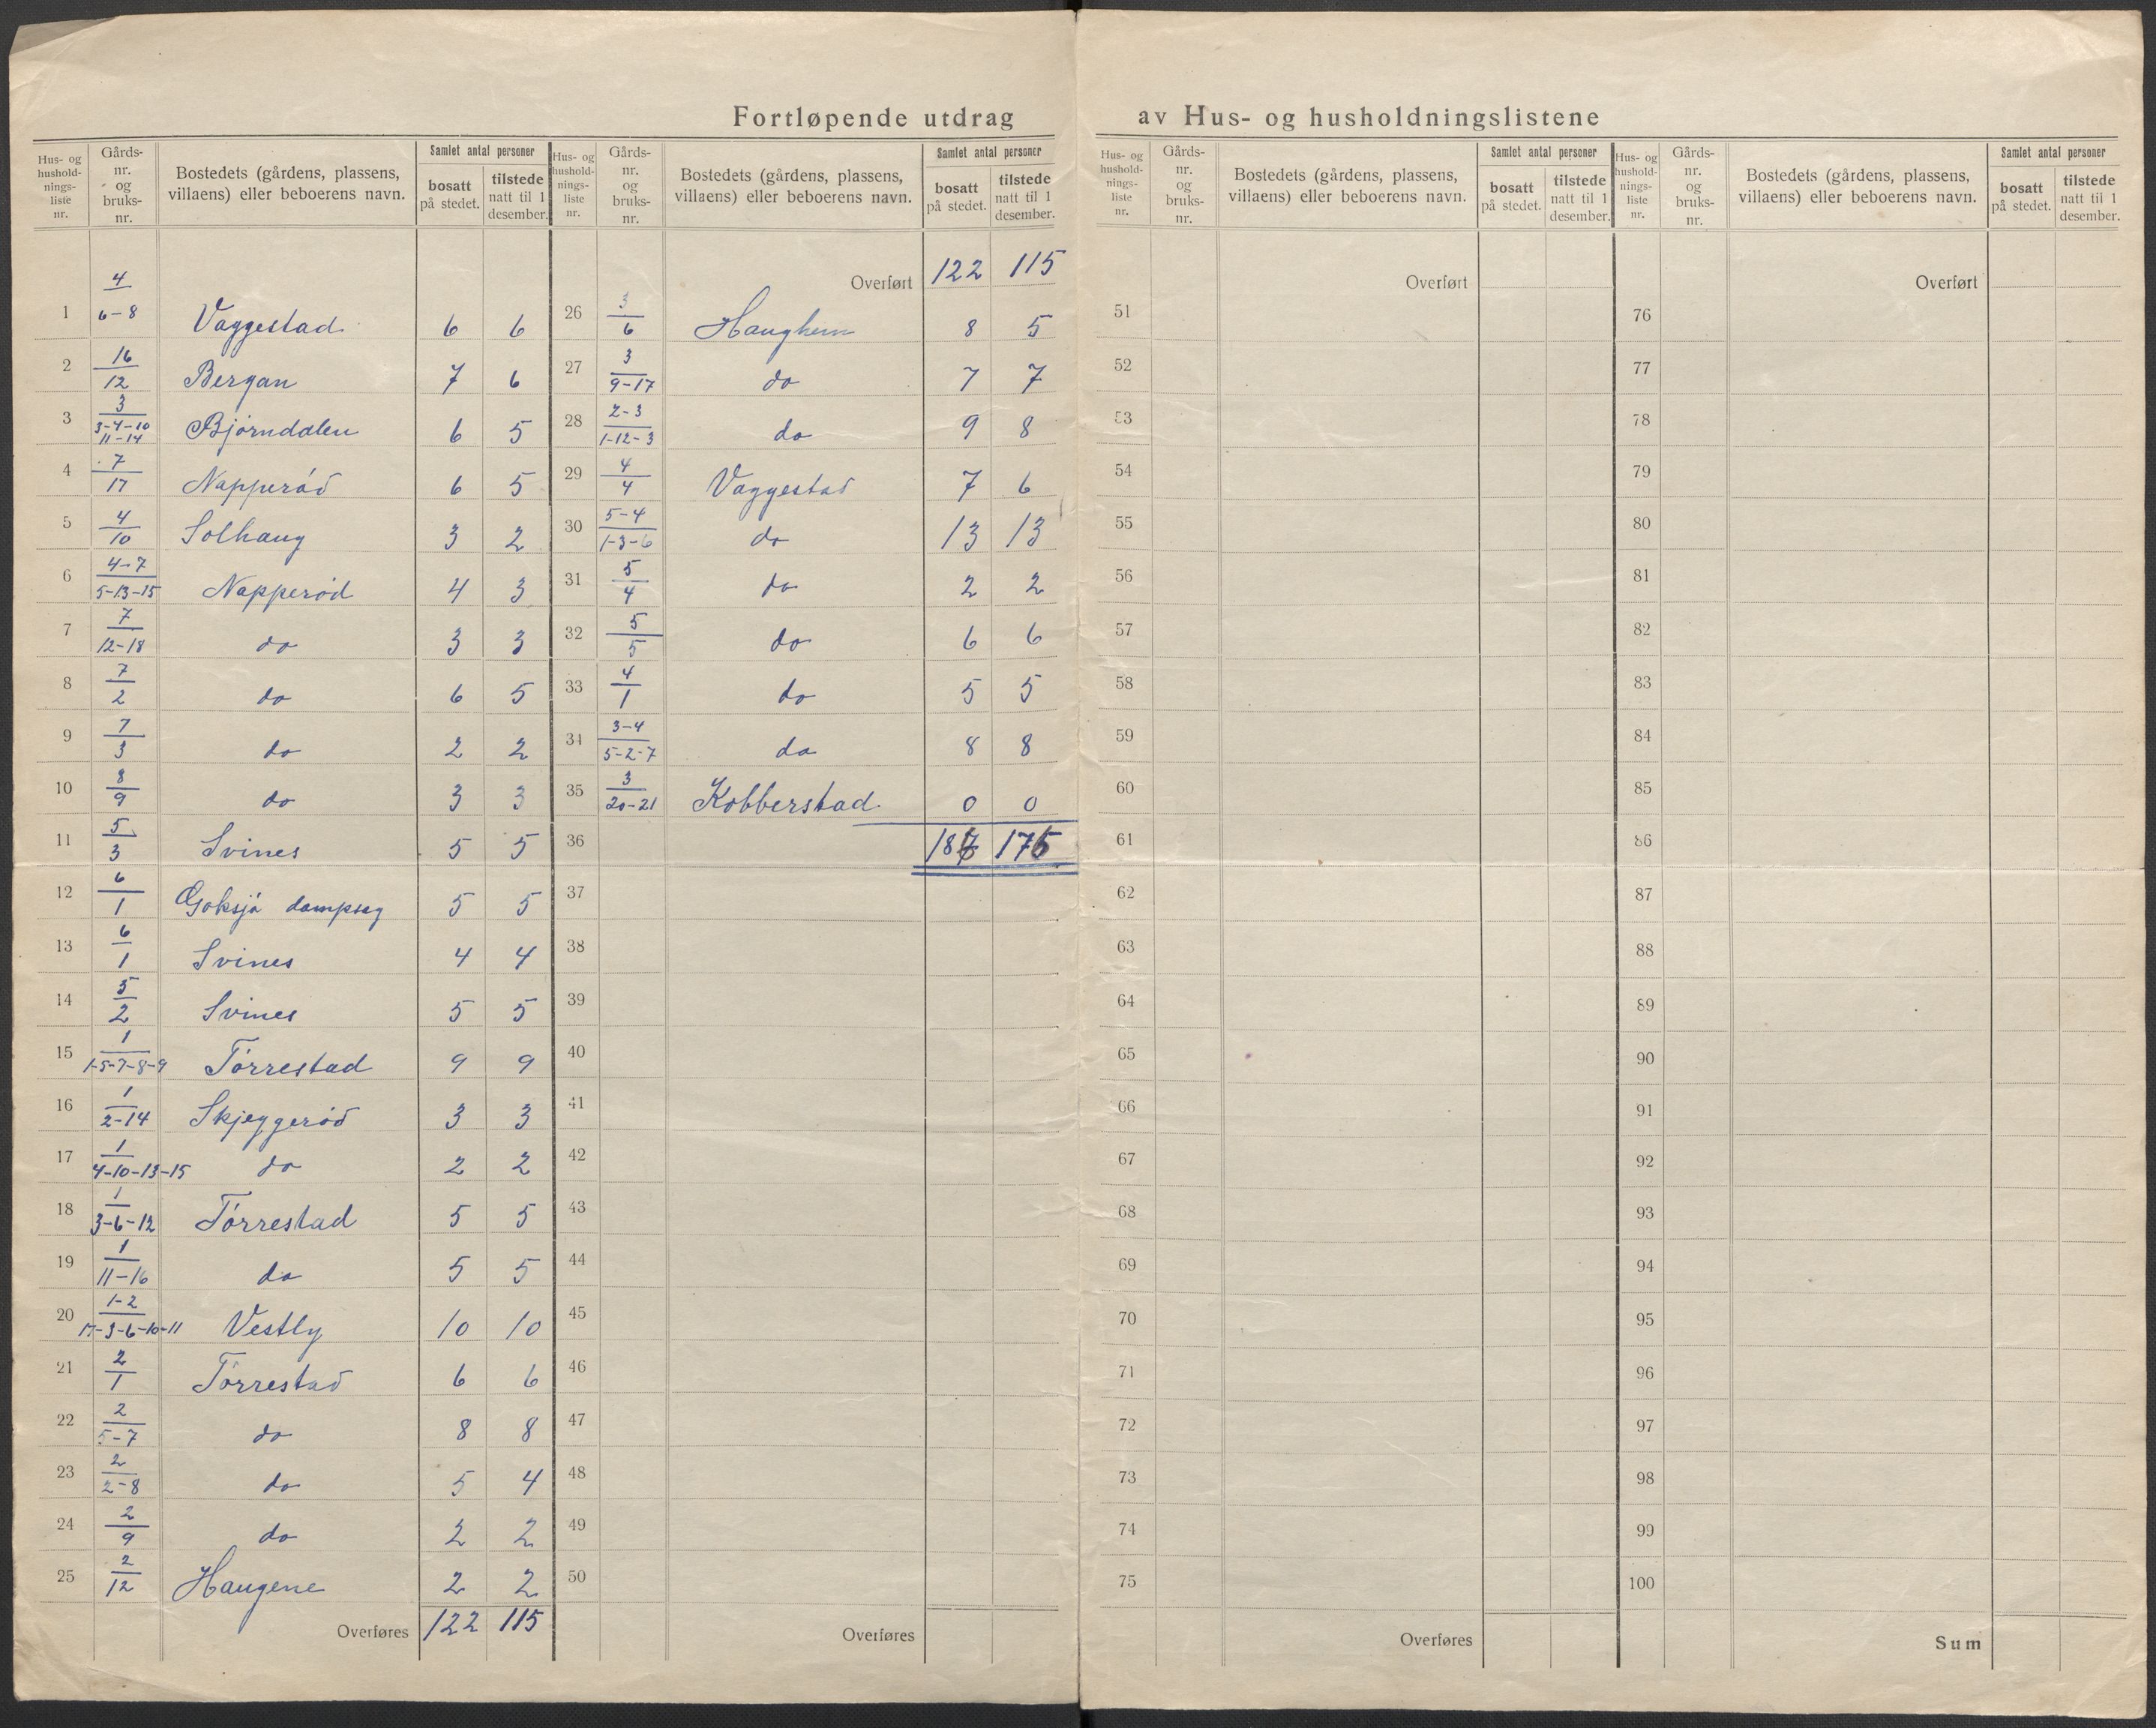 Fortløpende utdrag av Hus- og husholdningslistene
Hus- og hushold- nings- liste nr. | Gårds- nr. og bruks- nr. | Bostedets (gårdens, plassens, villaens) eller beboerens navn. | Samlet antal personer | bosatt på stedet. | tilstede natt til 1 desember.
1 4/6-8 Vaggestad 6 6
2 16/12 Bergan 7 6
3 3/3-4-10 11-14 Bjørndalen 6 5
4 7/17 Napperød 6 5
5 4/10 Solhaug 3 2
6 4-7/5-13-15 Napperød 4 3
7 7/12-18 do 3 3
8 7/2 do 6 5
9 7/3 do 2 2
10 8/9 do 3 3
11 5/3 Svines 5 5
12 6/1 Goksjø dampsag 5 5
13 6/1 Svines 4 4
14 5/2 Svines 5 5
15 1/1-5-7-8-9 Tørrestad 9 9
16 1/2-14 Skjeggerød 3 3
17 1/4-10-13-15 do 2 2
18 1/3-6-12 Tørrestad 5 5
19 1/11-16 do 5 5
20 1-2/17-3-6-10-11 Vestly 10 10
21 2/1 Tørrestad 6 6
22 2/5-7 do 8 8
23 2/2-8 do 5 4
24 2/9 do 2 2
25 2/12 Haugene 2 2
Overføres 122 115
Hus- og hushold- nings- liste nr. | Gårds- nr. og bruks- nr. | Bostedets (gårdens, plassens, villaens) eller beboerens navn. | Samlet antal personer | bosatt på stedet. | tilstede natt til 1 desember.
Overført 122 115
26 3/6 Haughem 8 5
27 3/9-17 do 7 7
28 2-3/1-12-3 do 9 8
29 4/4 Vaggestad 7 6
30 5-4/1-3-6 do 13 13
31 5/4 do 2 2
32 5/5 do 6 6
33 4/1 do 5 5
34 3-4/5-2-7 do 8 8
35 3/20-21 Kobberstad 0 0
36 187 175
37
38
39
40
41
42
43
44
45
46
47
48
49
50
Overføres
Hus- og hushold- nings- liste nr. | Gårds- nr. og bruks- nr. | Bostedets (gårdens, plassens, villaens) eller beboerens navn. | Samlet antal personer | bosatt på stedet. | tilstede natt til 1 desember.
Overført
51
52
53
54
55
56
57
58
59
60
61
62
63
64
65
66
67
68
69
70
71
72
73
74
75
Overføres
Hus- og hushold- nings- liste nr. | Gårds- nr. og bruks- nr. | Bostedets (gårdens, plassens, villaens) eller beboerens navn. | Samlet antal personer | bosatt på stedet. | tilstede natt til 1 desember.
Overført
76
77
78
79
80
81
82
83
84
85
86
87
88
89
90
91
92
93
94
95
96
97
98
99
100
Sum